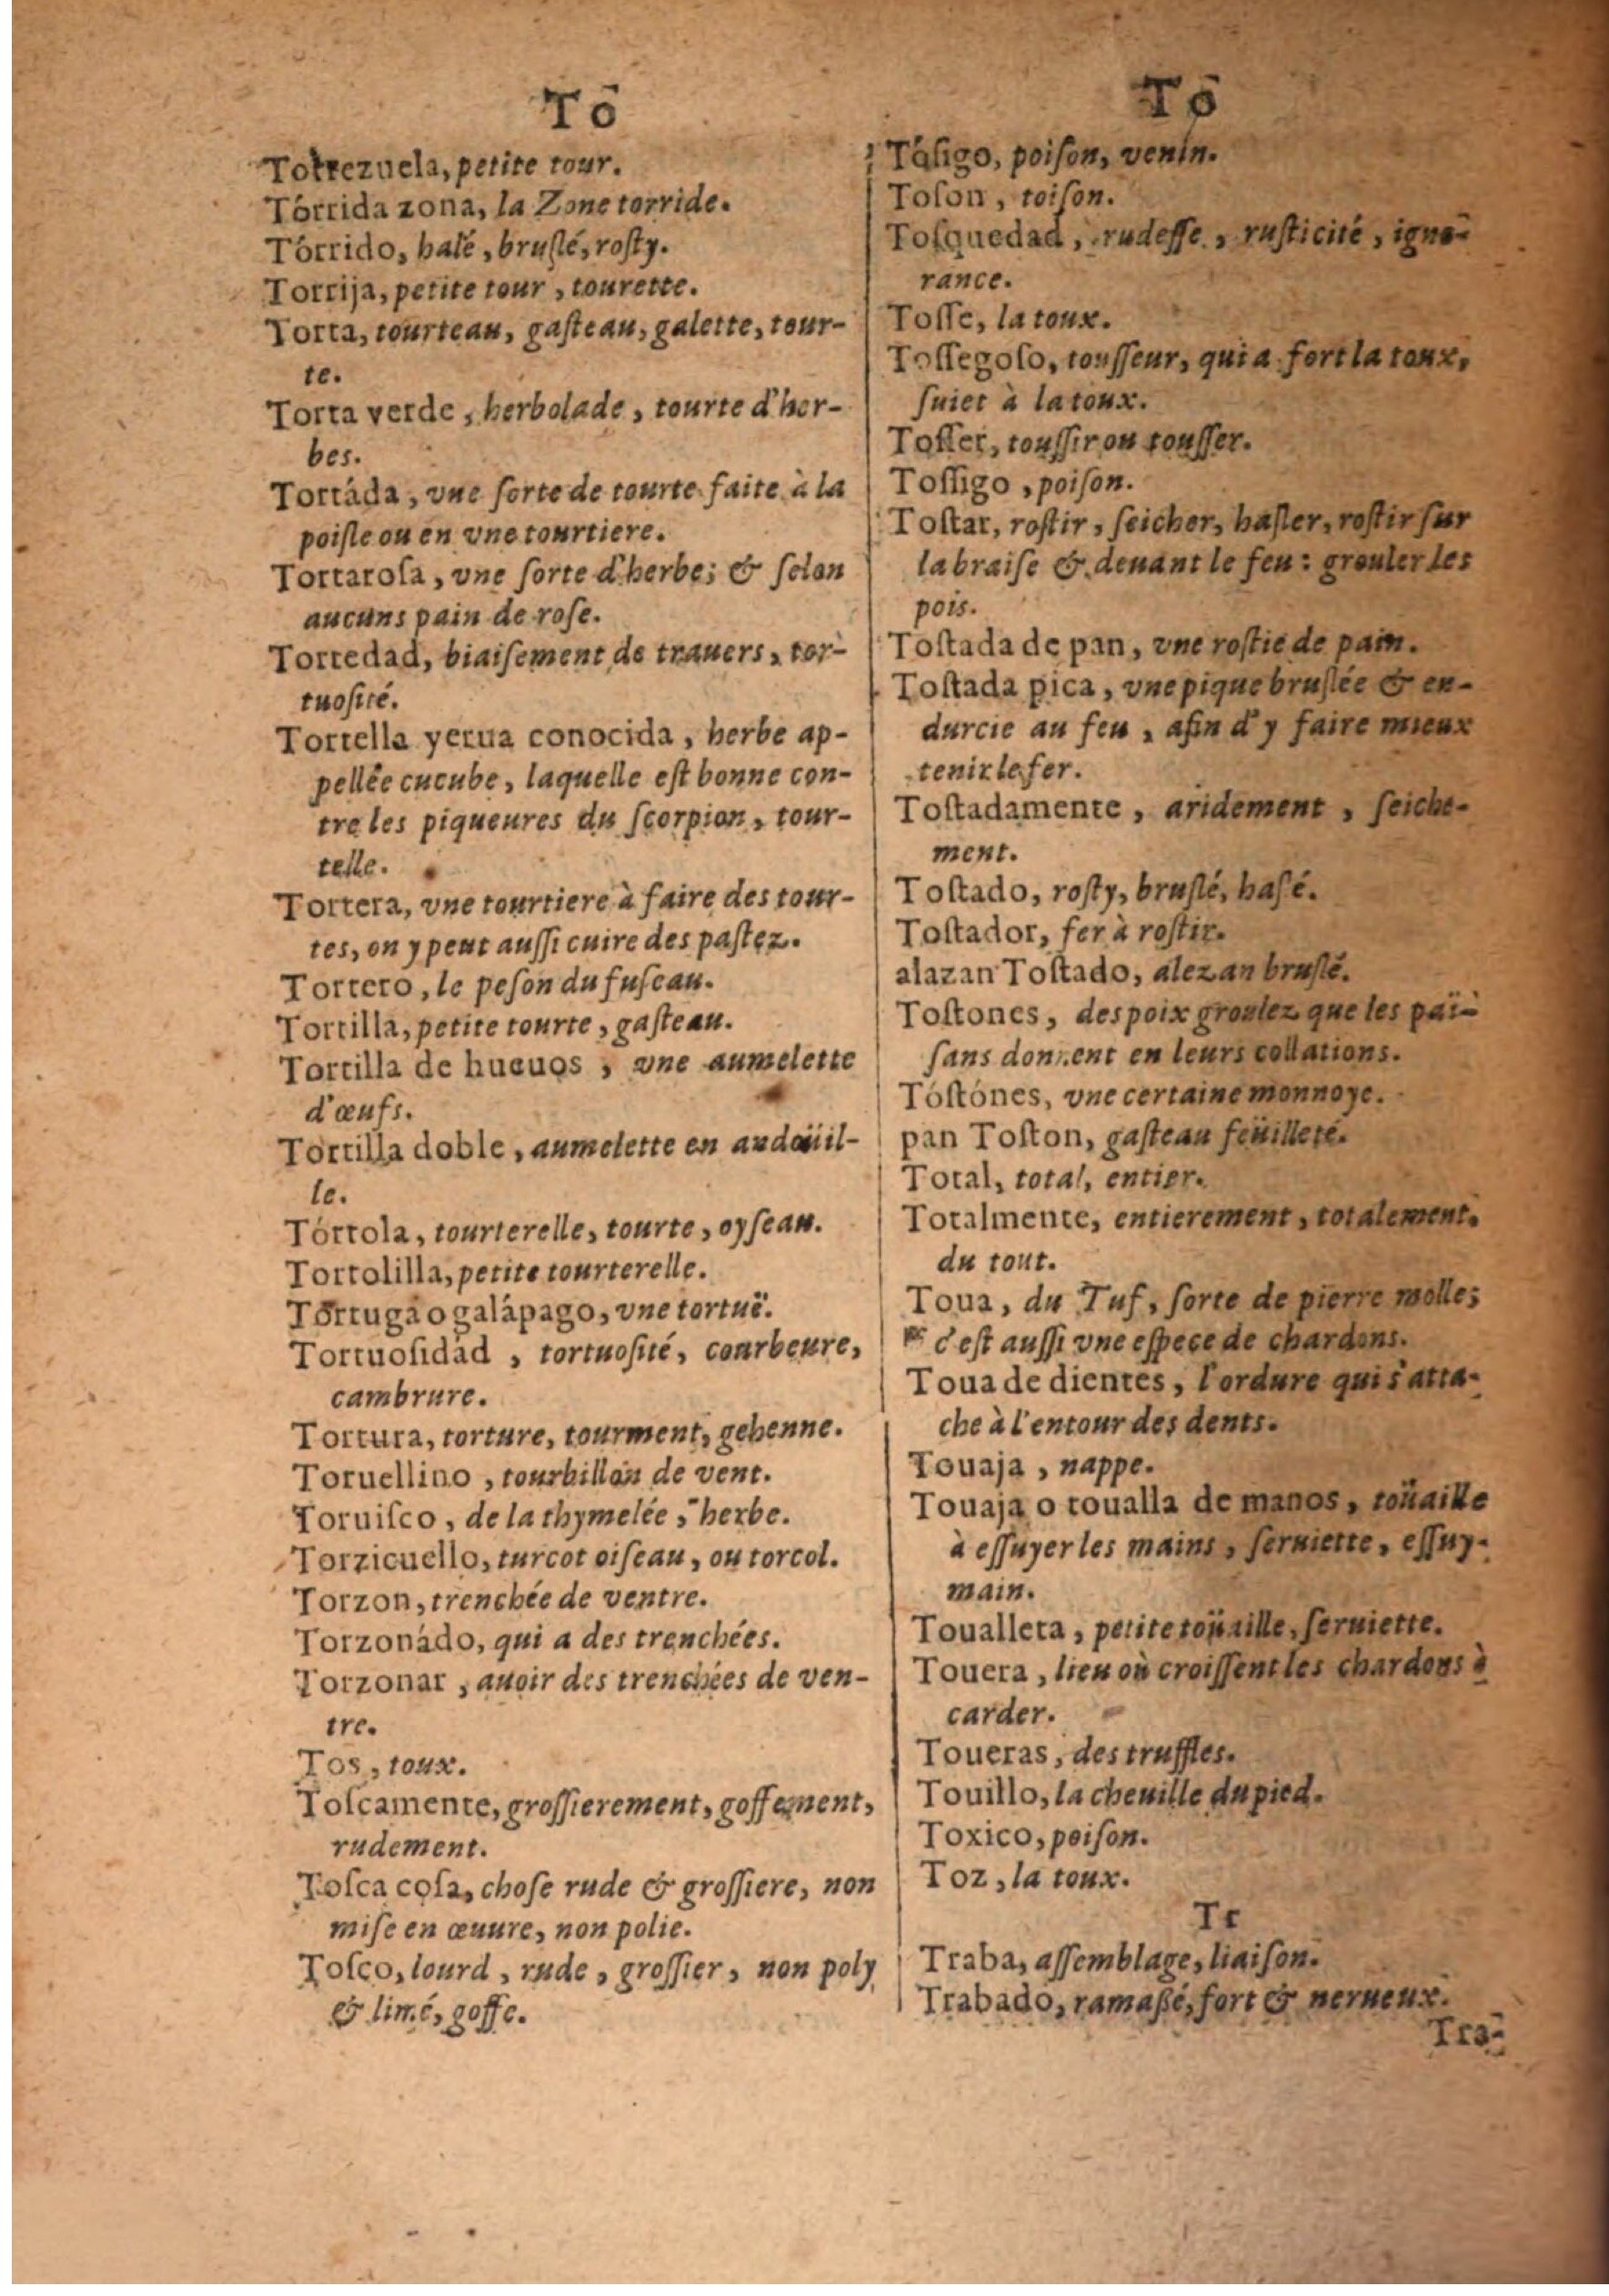 To
Torrezuela, petite tour.
Tórrida zona, la Zone torride.
Tórrido, halé, bruſlé, roſty.
Torrija, petite tour, tourette.
Torta, tourteau, gaſteau, galette, tour-
te.
Torta verde, herbolade, tourte d'her-
bes.
Tortáda, vne ſorte de tourte faite à la
poiſle ou en vne tourtiere.
Tortaroſa, vne ſorte d'herbe; & ſelon
aucuns pain de roſe.
Tortedad, biaiſement de trauers, tor-
tuoſité.
Tortella yerua conocida, herbe ap-
pellée cucube, laquelle eſt bonne con-
tre les piqueures du ſcorpion, tour-
telle.
Tortera, vne tourtiere à faire des tour-
tes, on y peut auſſi cuire des paſtez.
Tortero, le peſon du fuſeau.
Tortilla, petite tourte, gaſteau.
Tortilla de hueuos, vne aumelette
d'œufs.
Tortilla doble, aumelette en andoüil-
le.
Tórtola, tourterelle, tourte, oyſeau.
Tortolilla, petite tourterelle.
Tortuga o galápago, vne tortuë.
Tortuoſidad, tortuoſité, courbeure,
cambrure.
Tortura, torture, tourment, gehenne.
Toruellino, tourbillon de vent.
Toruiſco, de la thymelée, herbe.
Torzicuello, turcot oiſeau, ou torcol.
Torzon, trenchée de ventre.
Torzonádo, qui a des trenchées.
Torzonar, auoir des trenchées de ven-
tre.
Tos, toux.
Toſcamente, groſſierement, goffement,
rudement.
Toſca coſa, choſe rude & groſſiere, non
miſe en œuure, non polie.
Toſco, lourd, rude, groſſier, non poly
& limé, goffe.
To
Tóſigo, poiſon, venin.
Toſon, toiſon.
Toſquedad, rudeſſe, ruſticité, igno-
rance.
Toſſe, la toux.
Toſſegoſo, touſſeur, qui a fort la toux,
ſuiet à la toux.
Toſſer, touſſir ou touſſer.
Toſſigo, poiſon.
Toſtar, roſtir, ſeicher, haſler, roſtir ſur
la braiſe & deuant le feu: grouler les
pois.
Toſtada de pan, vne roſtie de pain.
Toſtada pica, vne pique bruſlée & en-
durcie au feu, afin d'y faire mieux
tenir le fer.
Toſtadamente, aridement, ſeiche-
ment.
Toſtado, roſty, bruſlé, haſé.
Toſtador, fer à roſtir.
alazan Toſtado, alezan bruſlé.
Toſtones, des poix groulez que les paï-
ſans donnent en leurs collations.
Tóſtónes, vne certaine monnoye.
pan Toſton, gaſteau feüilleté.
Total, total, entier.
Totalmente, entierement, totalement.
du tout.
Toua, du Tuf, ſorte de pierre molle;
c'eſt auſſi vne eſpece de chardons.
Toua de dientes, l'ordure qui s'atta-
che à l'entour des dents.
Touaja, nappe.
Touaja o toualla de manos, toüaille
à eſſuyer les mains, ſeruiette, eſſuy-
main.
Toualleta, petite toüaille, ſeruiette.
Touera, lieu où croiſſent les chardons à
carder.
Toueras, des truffles.
Touillo, la cheuille du pied.
Toxico, poiſon.
Toz, la toux.
Tr
Traba, aſſemblage, liaiſon.
Trabado, ramaßé, fort & nerueux.
Tra-